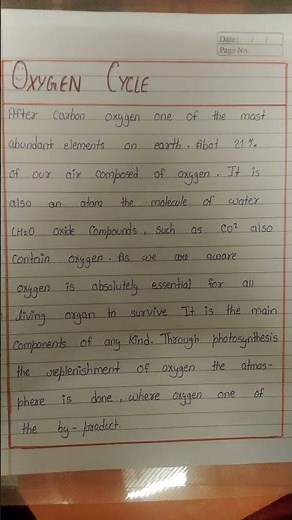 Date: / /
Page No.
OXYGEN CYCLE
After Carbon oxygen one of the most
abundant elements on earth. Abot 21 %
of our air composed of oxygen. It is
also an atom the molecule of water
CH2O oxide Compounds, such as CO² also
Contain oxygen. As we are aware
oxygen is absolutely essential for all
living organ to survive It is the main
Components of any Kind. Through photosynthesis
the replenishment of oxygen the atmos-
phere is done, where oxygen one of
the by-product.